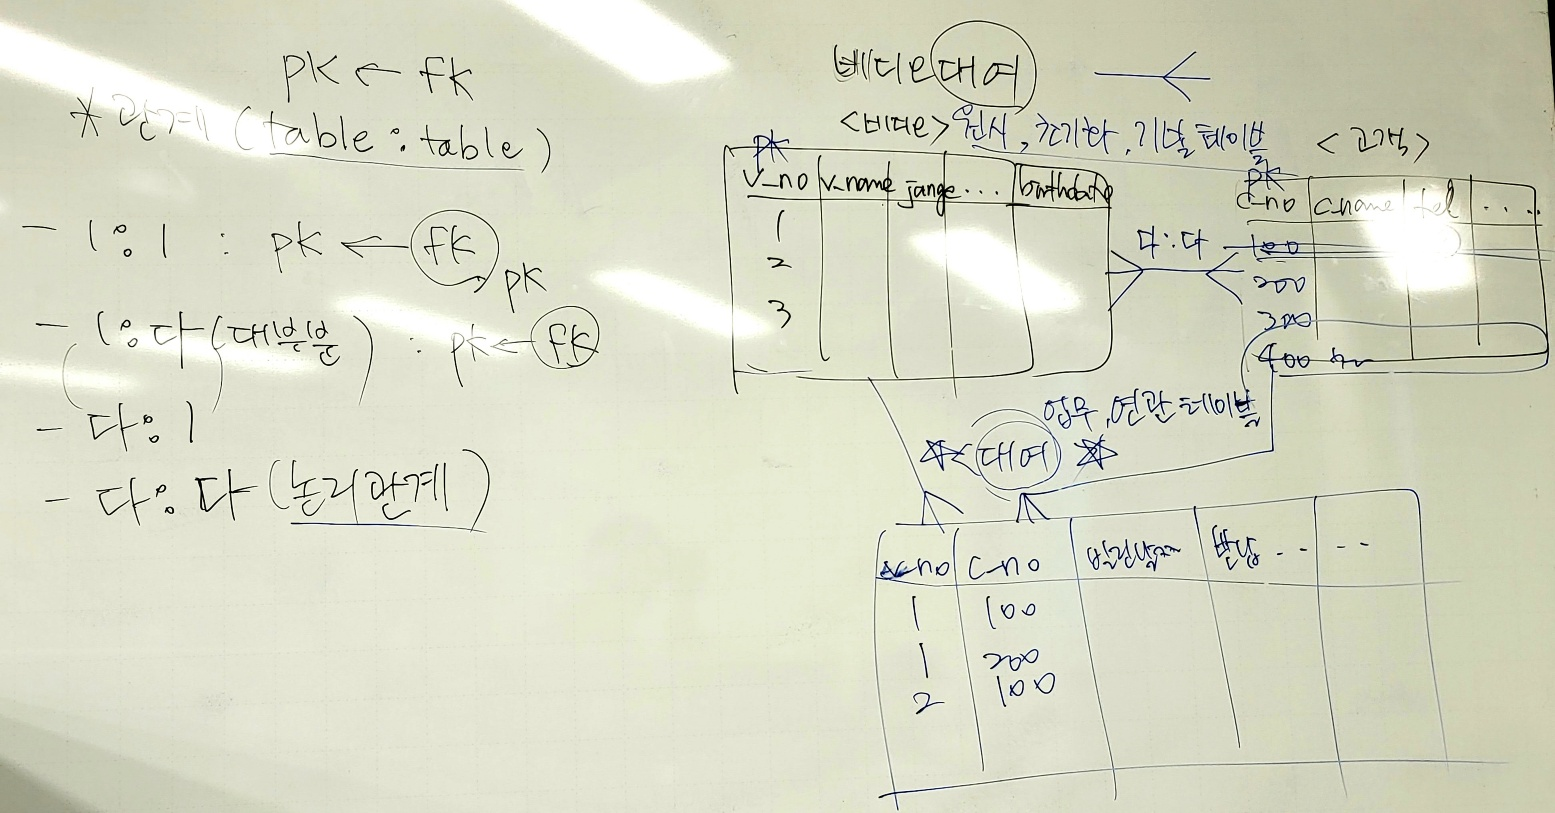 pk ← fk
* 관계 (table : table)
- 1 : 1 : pk ← fk
pk
- 1 : 다 (대부분) : pk ← fk
- 다 : 1
- 다 : 다 (논리관계)
비디오 대여
<비디오> 원시, 초기화, 기널 테이블
pk
v_no v_name jange ... birthdate
1
2
3
다 : 다
<고객>
pk
c_no c_name tel ....
100
200
300
400
업무, 연관 테이블
<대여>
v_no c_no 빌린날짜 반납 .. ..
1 100
1 200
2 100